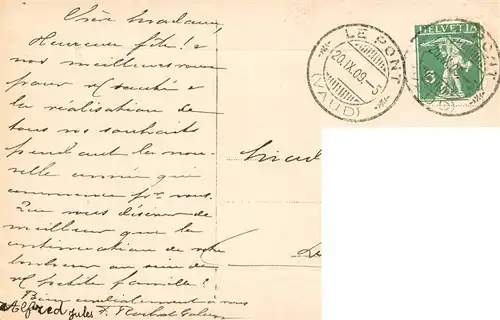 Chère Madame,
Heureuse fête! &
nos meilleurs vœux
pour vtre santé & la
réalisation de
tous vos souhaits
pendant la nou-
velle année qui
commence pr vous.
Que vous désirer de
meilleur que la
continuation de votre
bonheur au sein de
vtre petite famille?
Bien cordialement à vous
Alfred Jules F. Rochat
LE PONT
20.IX.09.-5
(VAUD)
HELVETIA
5
PONT